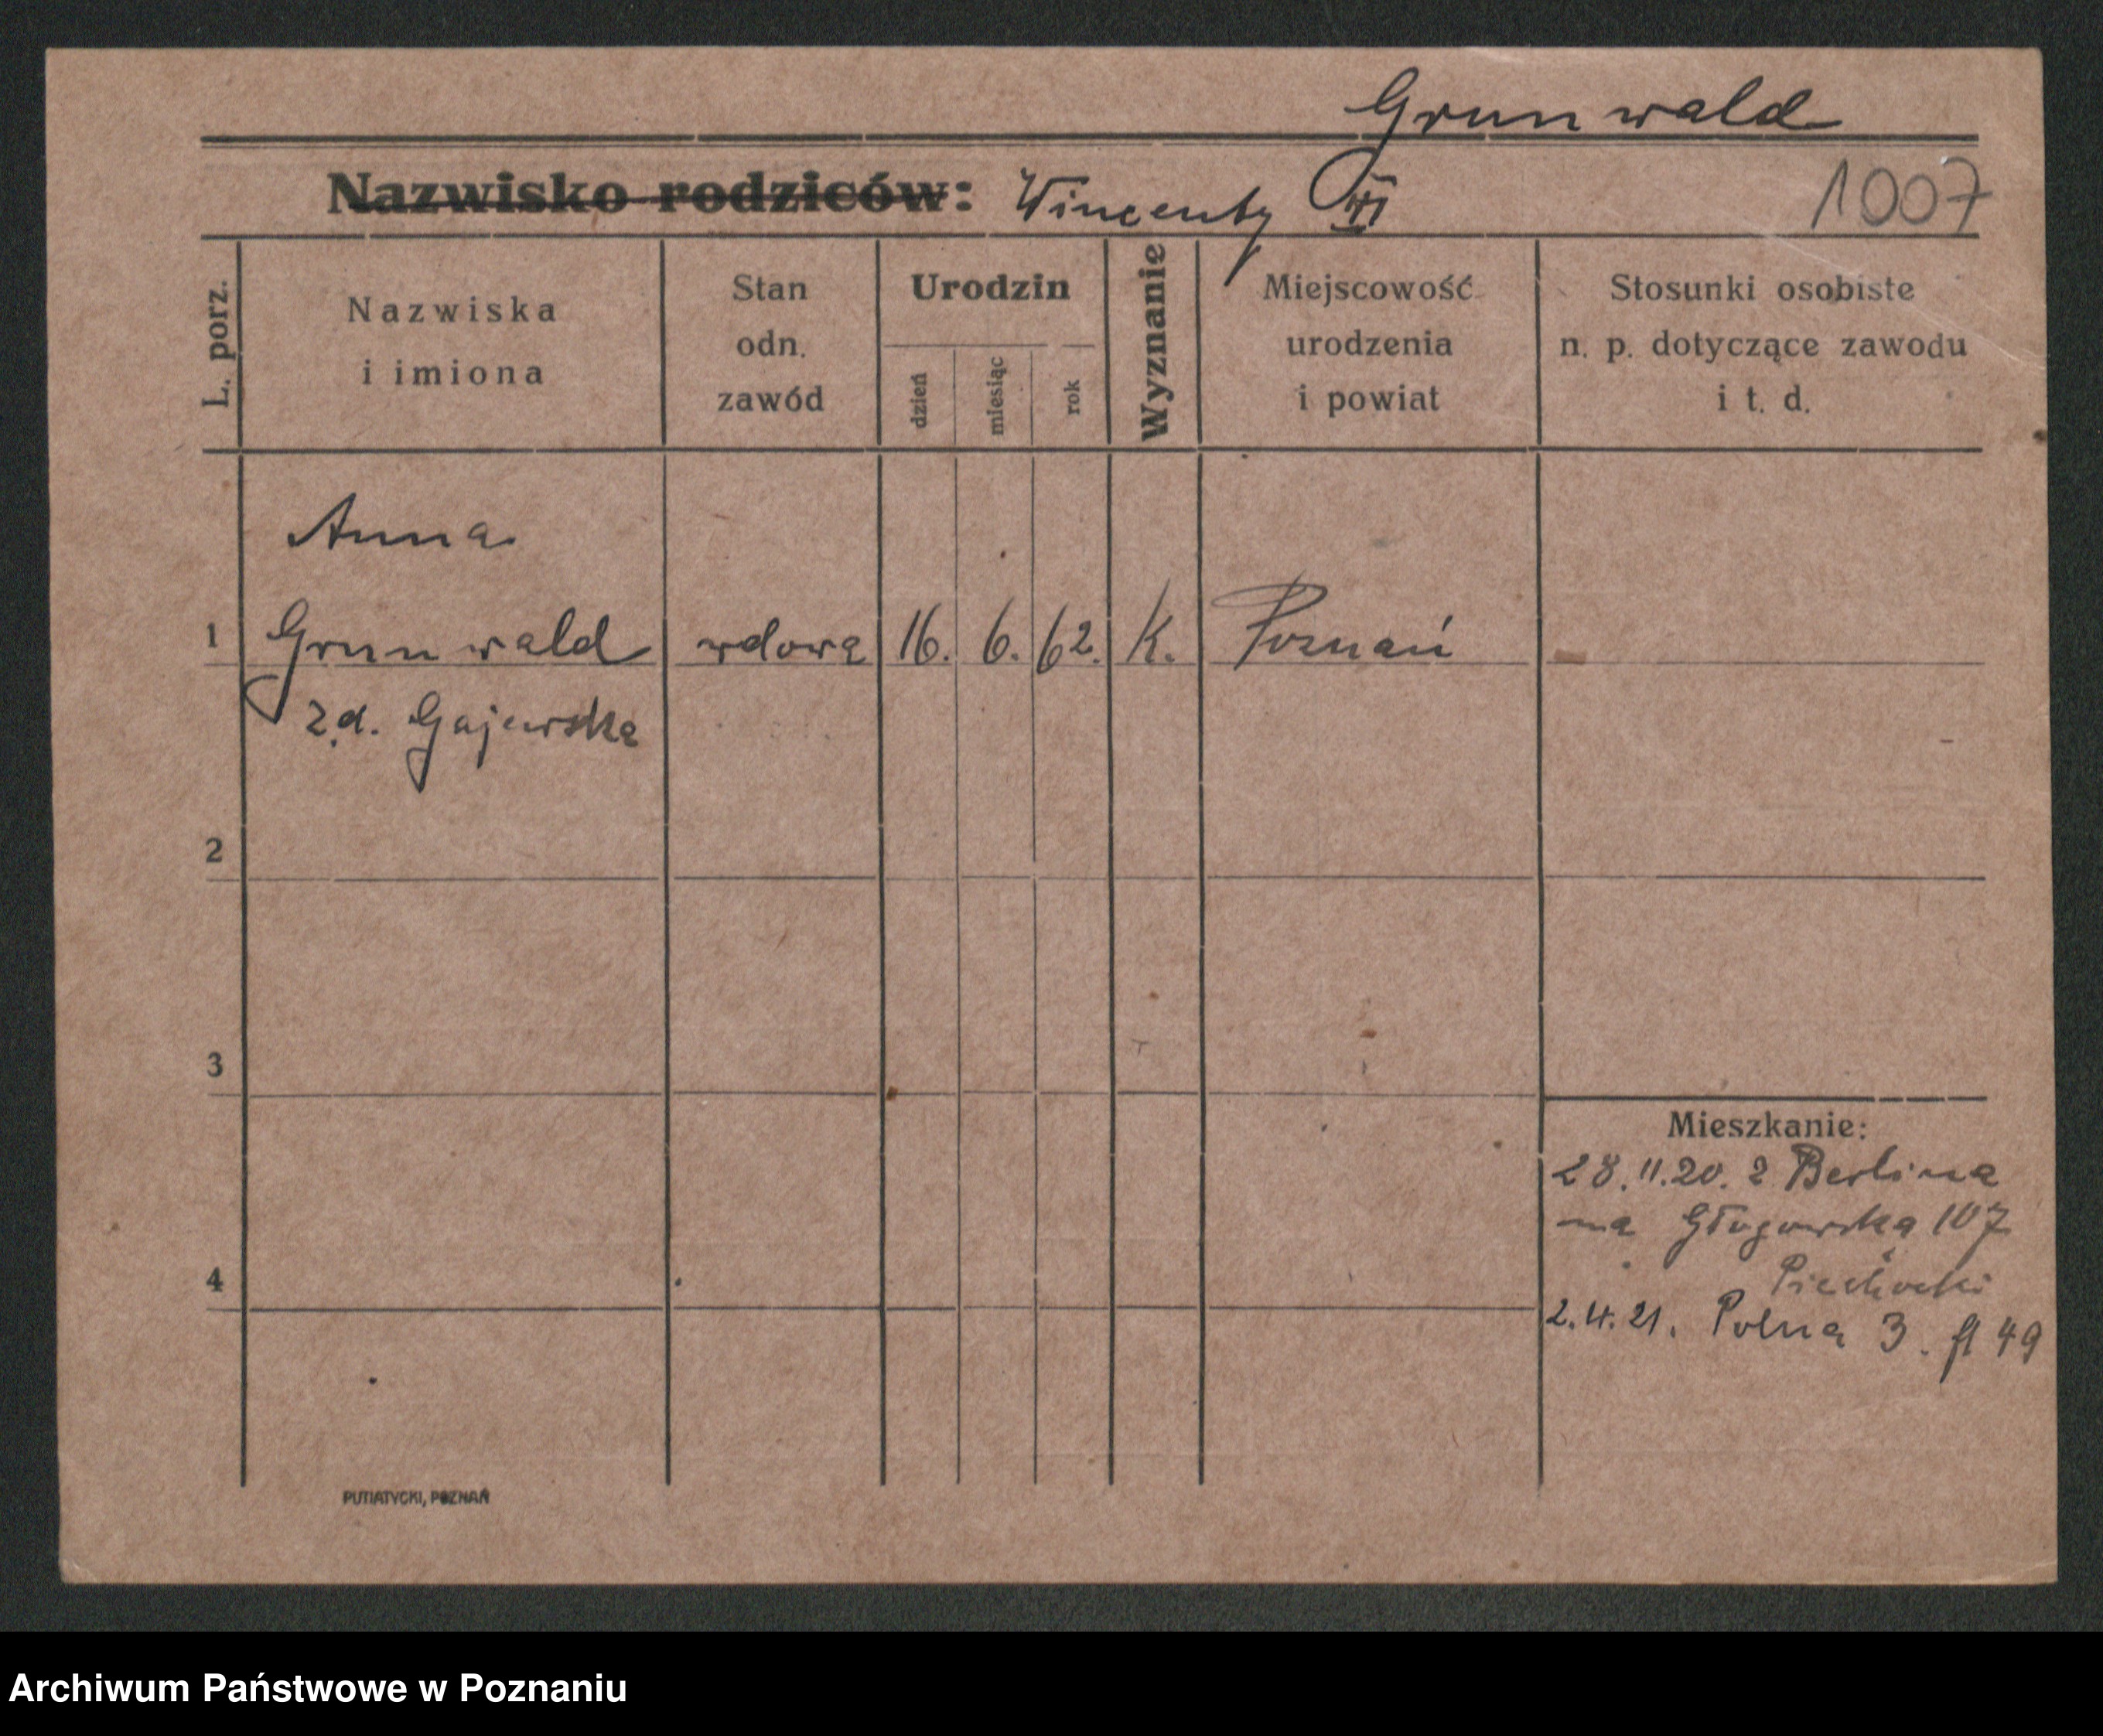 Grunwald
Nazwisko rodziców: Wincenty VI 1007
L. porz.
Nazwiska
i imiona
Stan
odn.
zawód
Urodzin
dzień
miesiąc
rok
Wyznanie
Miejscowość
urodzenia
i powiat
Stosunki osobiste
n. p. dotyczące zawodu
i t. d.
Anna
1 Grunwald wdowa 16. 6. 62. K. Poznań
z.d. Gajewska
2
3
Mieszkanie:
28.11.20. z Berlina
na Głogowska 107
Piechocki
4
2.4.21. Polna 3. fl 49
PUTIATYCKI, POZNAŃ
Archiwum Państwowe w Poznaniu